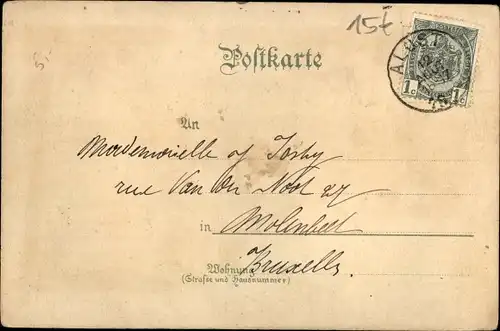 15t
5,-
Postkarte
ALOST
1c 1c
An
Mademoiselle
rue Van der Noot 27
in Molenbeek
Bruxelles.
Wohnung
(Strasse und Hausnummer)